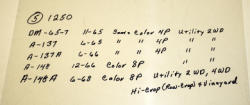 ⑤ 1250
DM-65-7 11-65 Some Color 4P Utility 2WD
A-137 6-65 " " 4P " "
A-137A 6-65 " " 4P " "
A-148 12-66 Color 8P " "
A-148A 6-68 Color 8P Utility 2WD, 4WD
Hi-Crop (Row-Crop) & Vineyard